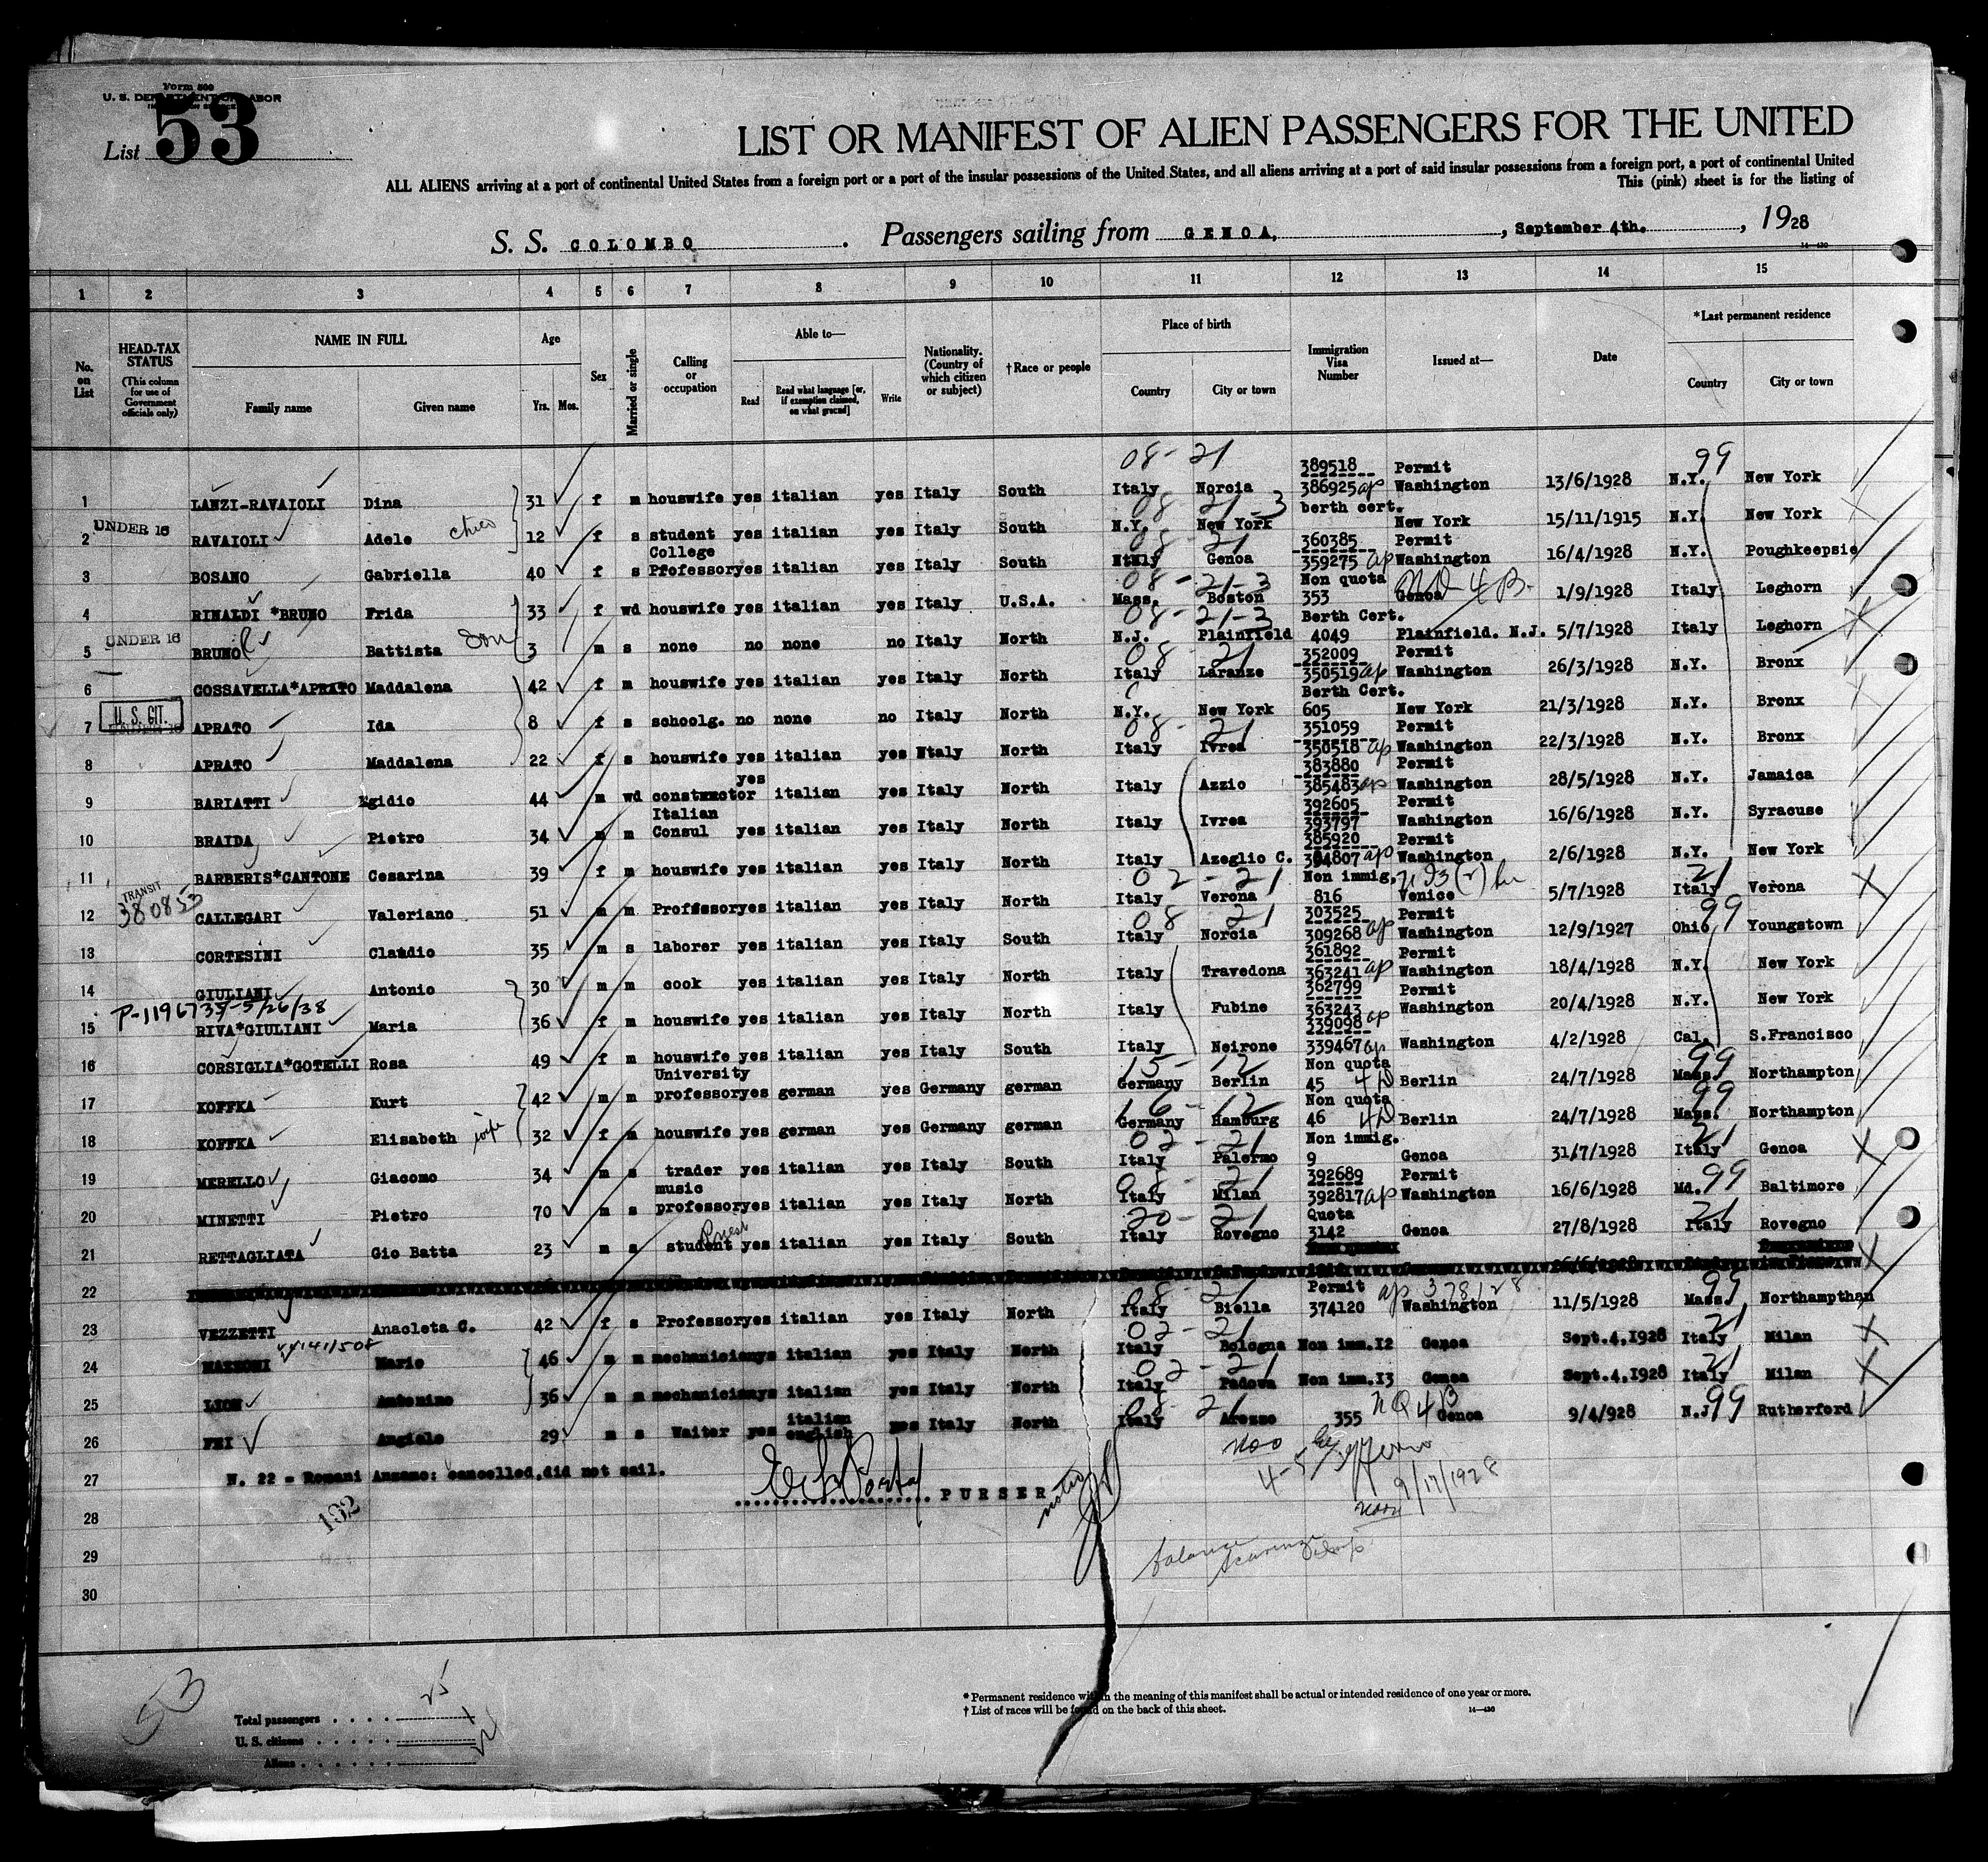 Form 500
U. S. DEPARTMENT OF LABOR
List 53
LIST OR MANIFEST OF ALIEN PASSENGERS FOR THE UNITED
ALL ALIENS arriving at a port of continental United States from a foreign port or a port of the insular possessions of the United States, and all aliens arriving at a port of said insular possessions from a foreign port, a port of continental United
This (pink) sheet is for the listing of
S. S. COLOMBO. Passengers sailing from GENOA, , September 4th. , 1928
1 2 3 4 5 6 7 8 9 10 11 12 13 14 15
No. on List
HEAD-TAX STATUS
(This column for use of Government officials only)
NAME IN FULL
Family name Given name
Age
Yrs. Mos.
Sex
Married or single
Calling or occupation
Able to—
Read Read what language [or, if exemption claimed, on what ground] Write
Nationality. (Country of which citizen or subject)
†Race or people
Place of birth
Country City or town
Immigration Visa Number
Issued at—
Date
*Last permanent residence
Country City or town
08-21 389518 Permit 99
1 LANZI-RAVAIOLI Dina 31 f m houswife yes italian yes Italy South Italy Norcia 386925 ap Washington 13/6/1928 N.Y. New York
UNDER 16 08-21-3 berth cert.
2 RAVAIOLI Adele 12 f s student yes italian yes Italy South N.Y. New York New York 15/11/1915 N.Y. New York
College 08-21 360385 Permit
3 BOSANO Gabriella 40 f s Pfofessor yes italian yes Italy South Italy Genoa 359275 ap Washington 16/4/1928 N.Y. Poughkeepsie
08-21-3 Non quota
4 RINALDI *BRUNO Frida 33 f wd houswife yes italian yes Italy U.S.A. Mass. Boston 353 Genoa 1/9/1928 Italy Leghorn
UNDER 16 08-21-3 Berth Cert.
5 BRUNO Battista Son 3 m s none no none no Italy North N.J. Plainfield 4049 Plainfield. N.J. 5/7/1928 Italy Leghorn
08-21 352009 Permit
6 COSSAVELLA*APRATO Maddalena 42 f m houswife yes italian yes Italy North Italy Laranze 350519 ap Washington 26/3/1928 N.Y. Bronx
U. S. CIT. Berth Cert.
7 APRATO Ida 8 f s schoolg. no none no Italy North N.Y. New York 605 New York 21/3/1928 N.Y. Bronx
08-21 351059 Permit
8 APRATO Maddalena 22 f s houswife yes italian yes Italy North Italy Ivrea 350518 ap Washington 22/3/1928 N.Y. Bronx
383880 Permit
9 BARIATTI Egidio 44 m wd constructor yes italian yes Italy North Italy Azzio 385483 ap Washington 28/5/1928 N.Y. Jamaica
Italian 392605 Permit
10 BRAIDA Pietro 34 m m Consul yes italian yes Italy North Italy Ivrea 393797 Washington 16/6/1928 N.Y. Syracuse
385920 Permit
11 BARBERIS*CANTONE Cesarina 39 f m houswife yes italian yes Italy North Italy Azeglio C. 394807 ap Washington 2/6/1928 N.Y. New York
TRANSIT 380853 02-21 Non immig. 21
12 CALLEGARI Valeriano 51 m m Professor yes italian yes Italy North Italy Verona 816 Venice 5/7/1928 Italy Verona
08 21 303525 Permit 99
13 CORTESINI Claudio 35 m s laborer yes italian yes Italy South Italy Norcia 309268 ap Washington 12/9/1927 Ohio Youngstown
361892 Permit
14 GIULIANI Antonio 30 m m cook yes italian yes Italy North Italy Travedona 363241 ap Washington 18/4/1928 N.Y. New York
P-1196735-5/26/38 362799 Permit
15 RIVA*GIULIANI Maria 36 f m houswife yes italian yes Italy North Italy Fubine 363243 ap Washington 20/4/1928 N.Y. New York
339098
16 CORSIGLIA*GOTELLI Rosa 49 f m houswife yes italian yes Italy South Italy Neirone 339467 ap Washington 4/2/1928 Cal. S.Francisco
University 15-12 Non quota 99
17 KOFFKA Kurt 42 m m professor yes german yes Germany german Germany Berlin 45 4D Berlin 24/7/1928 Mass. Northampton
16-12 Non quota 99
18 KOFFKA Elisabeth wife 32 f m houswife yes german yes Germany german Germany Hamburg 46 4D Berlin 24/7/1928 Mass. Northampton
02-21 Non immig. 21
19 MERELLO Giacomo 34 m s trader yes italian yes Italy South Italy Palermo 9 Genoa 31/7/1928 Italy Genoa
music 08-21 392689 Permit 99
20 MINETTI Pietro 70 m s professor yes italian yes Italy North Italy Milan 392817 ap Washington 16/6/1928 Md. Baltimore
Priest 20-21 Quota 21
21 RETTAGLIATA Gio Batta 23 m s student yes italian yes Italy South Italy Rovegno 3142 Genoa 27/8/1928 Italy Rovegno
22
08-21 Permit ap 378128 99
23 VEZZETTI Anacleta C. 42 f s Professor yes italian yes Italy North Italy Biella 374120 Washington 11/5/1928 Mass. Northampthan
02-21 21
24 MAZZONI Mario 46 m m mechanician yes italian yes Italy North Italy Bologna Non imm.12 Genoa Sept.4.1928 Italy Milan
02-21 21
25 LION Antonino 36 m m mechanician yes italian yes Italy North Italy Padova Non imm.13 Genoa Sept.4.1928 Italy Milan
italian 08-21 NQ 4B 99
26 FEI Angiolo 29 m s Waiter yes english yes Italy North Italy Arezzo 355 Genoa 9/4/928 N.J. Rutherford
27 N. 22 = Romani Anzano: cancelled.did not sail.
PURSER
9/17/1928
28
192
29
30
53
Total passengers 25
U. S. citizens
Aliens
* Permanent residence within the meaning of this manifest shall be actual or intended residence of one year or more.
† List of races will be found on the back of this sheet.
14—430